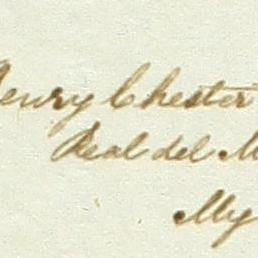 Henry Chester
Real del M
My